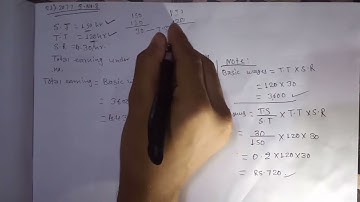 S.T = 150 hr
T.T = 120 hr
S.R = 30 hr.
150
120
30
Total earning under
Total earning = Basic w
= 3600
Note:
Basic wages = T.T X S.R
= 120 X 30
= 3600
= T.S / S.T X T.T X S.R
= 30 / 150 X 120 X 30
= 0.2 X 120 X 30
= RS.720